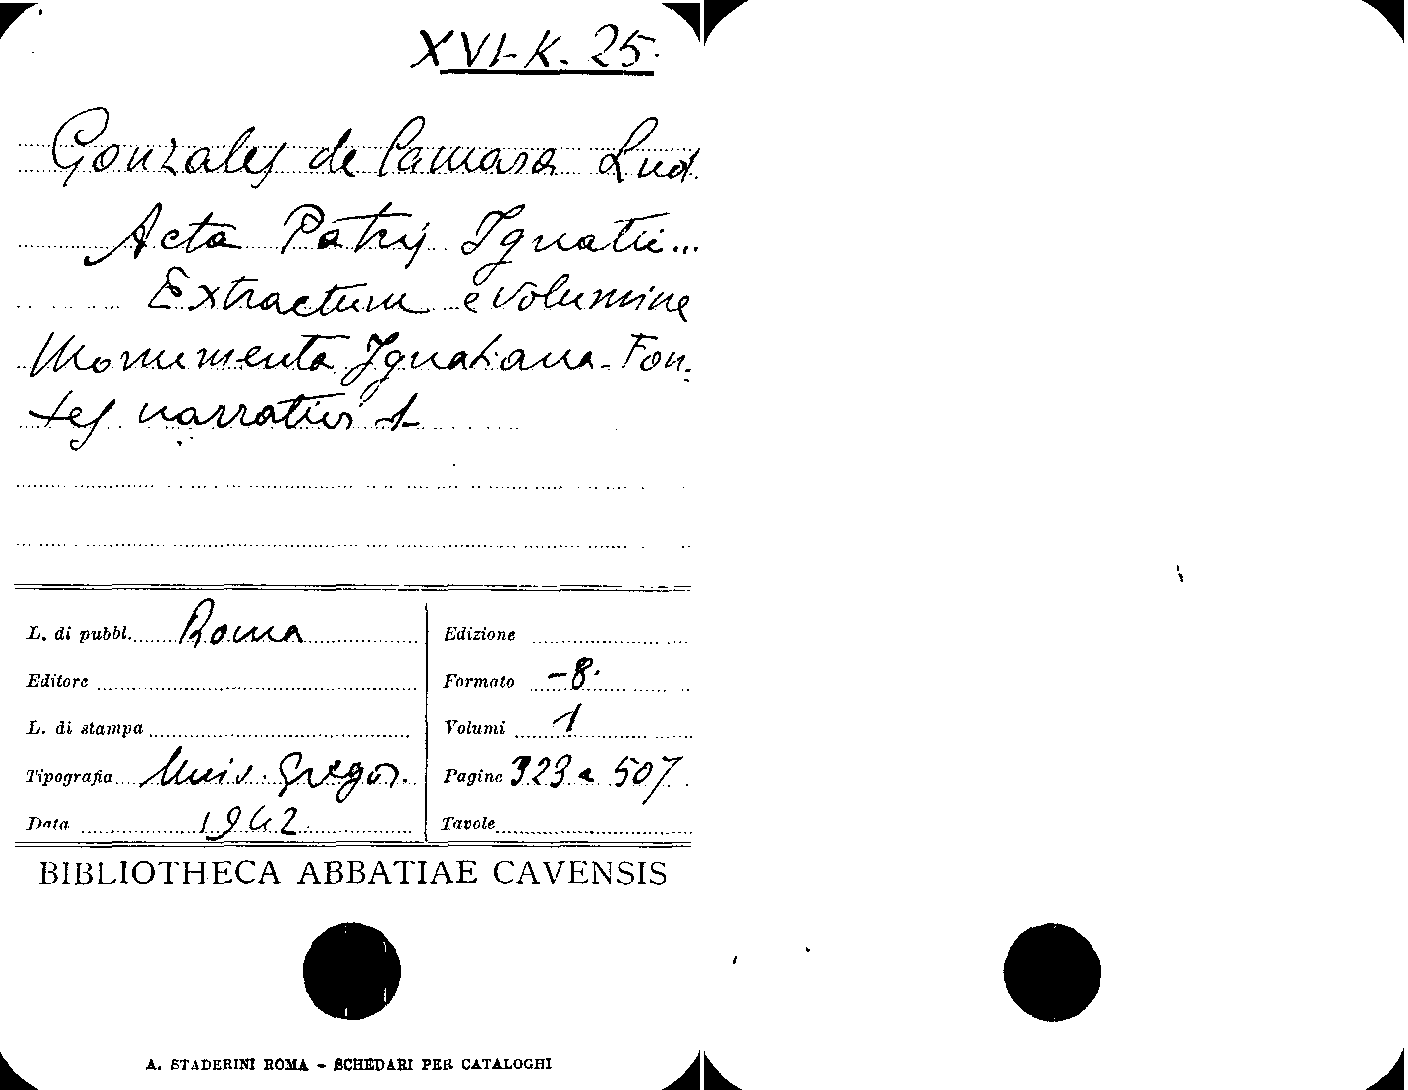 XVI-K. 25.
Gonzales de Camara Lud.
Acta Patris Ignatii...
Extractum e volumine
Monumenta Ignatiana - Fon-
tes narrativi 1
L. di pubbl. Roma
Editore
L. di stampa
Tipografia Univ. Gregor.
Data 1942
Edizione
Formato -8.
Volumi 1
Pagine 323 a 507
Tavole
BIBLIOTHECA ABBATIAE CAVENSIS
A. STADERINI ROMA - SCHEDARI PER CATALOGHI